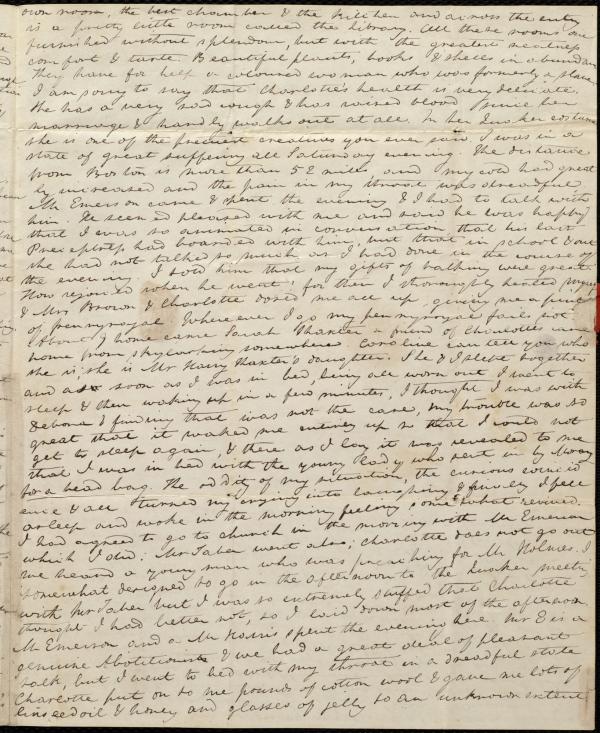 own room, the best chamber & the kitchen and across the entry
is a pretty little room called the Library. All these rooms are
furnished without splendour, but with the greatest neatness
comfort & taste. Beautiful plants, books & shells in abundance
They have for help a coloured woman who was formerly a slave
I am sorry to say that Charlotte's health is very delicate.
She has a very sad cough & has raised blood since her
marriage & hardly walks out at all. In her Quaker costume
she is one of the prettiest creatures you ever saw. I was in a
state of great suffering all Saturday evening. The distance
from Boston is more than 52 miles, and my cold had great
ly increased and the pain in my throat was dreadful
Mr Emerson came & spent the evening & I had to talk with
him. He seemed pleased with me and said he was happy
that I was so animated in conversation, that his last
Preceptress had boarded with him, but that in school & out
she had not talked so much as I had done in the course of
the evening. I told him that my gifts of talking were great.
How rejoiced when he went, for then I thoroughly heated myself
& Mrs Brown & Charlotte dosed me all up, giving me a
of pennyroyal. Wherever I go my pennyroyal fails not
About 9 home came Sarah Thaxter a friend of Charlottes
home from skylarking somewhere. Caroline can tell you who
she is; she is Mr Harry Thaxter's daughter. She & I slept together
and as soon as I was in bed, being all worn out I went to
sleep & then waking up in a few minutes, I thought I was with
Debora & finding that was not the case, my trouble was so
great that it waked me entirely up so that I could not
get to sleep again, & there as I lay it was revealed to me
that I was in bed with the young lady who sent in by
for a bead bag. The oddity of my situation, the curious coincid
ence & all turned my crying into laughing & finally I fell
asleep and woke in the morning feeling somewhat revived.
I had agreed to go to church in the morning with Mr Emerson
which I did; Mr Taber went also; Charlotte does not go out
We heard a young man who was preaching for Mr Holmes. I
somewhat designed to go in the afternoon to the Quaker meeting
with Mr Taber but I was so extremely stuffed that Charlotte
thought I had better not, so I laid down most of the afternoon
Mr Emerson and a Mr spent the evening here. Mr E is a
genuine Abolitionist & we had a great deal of pleasant
talk, but I went to bed with my throat in a dreadful state
Charlotte put on to me pounds of cotton wool & gave me lots of
linseed oil & honey and glasses of jelly to an unknown extent